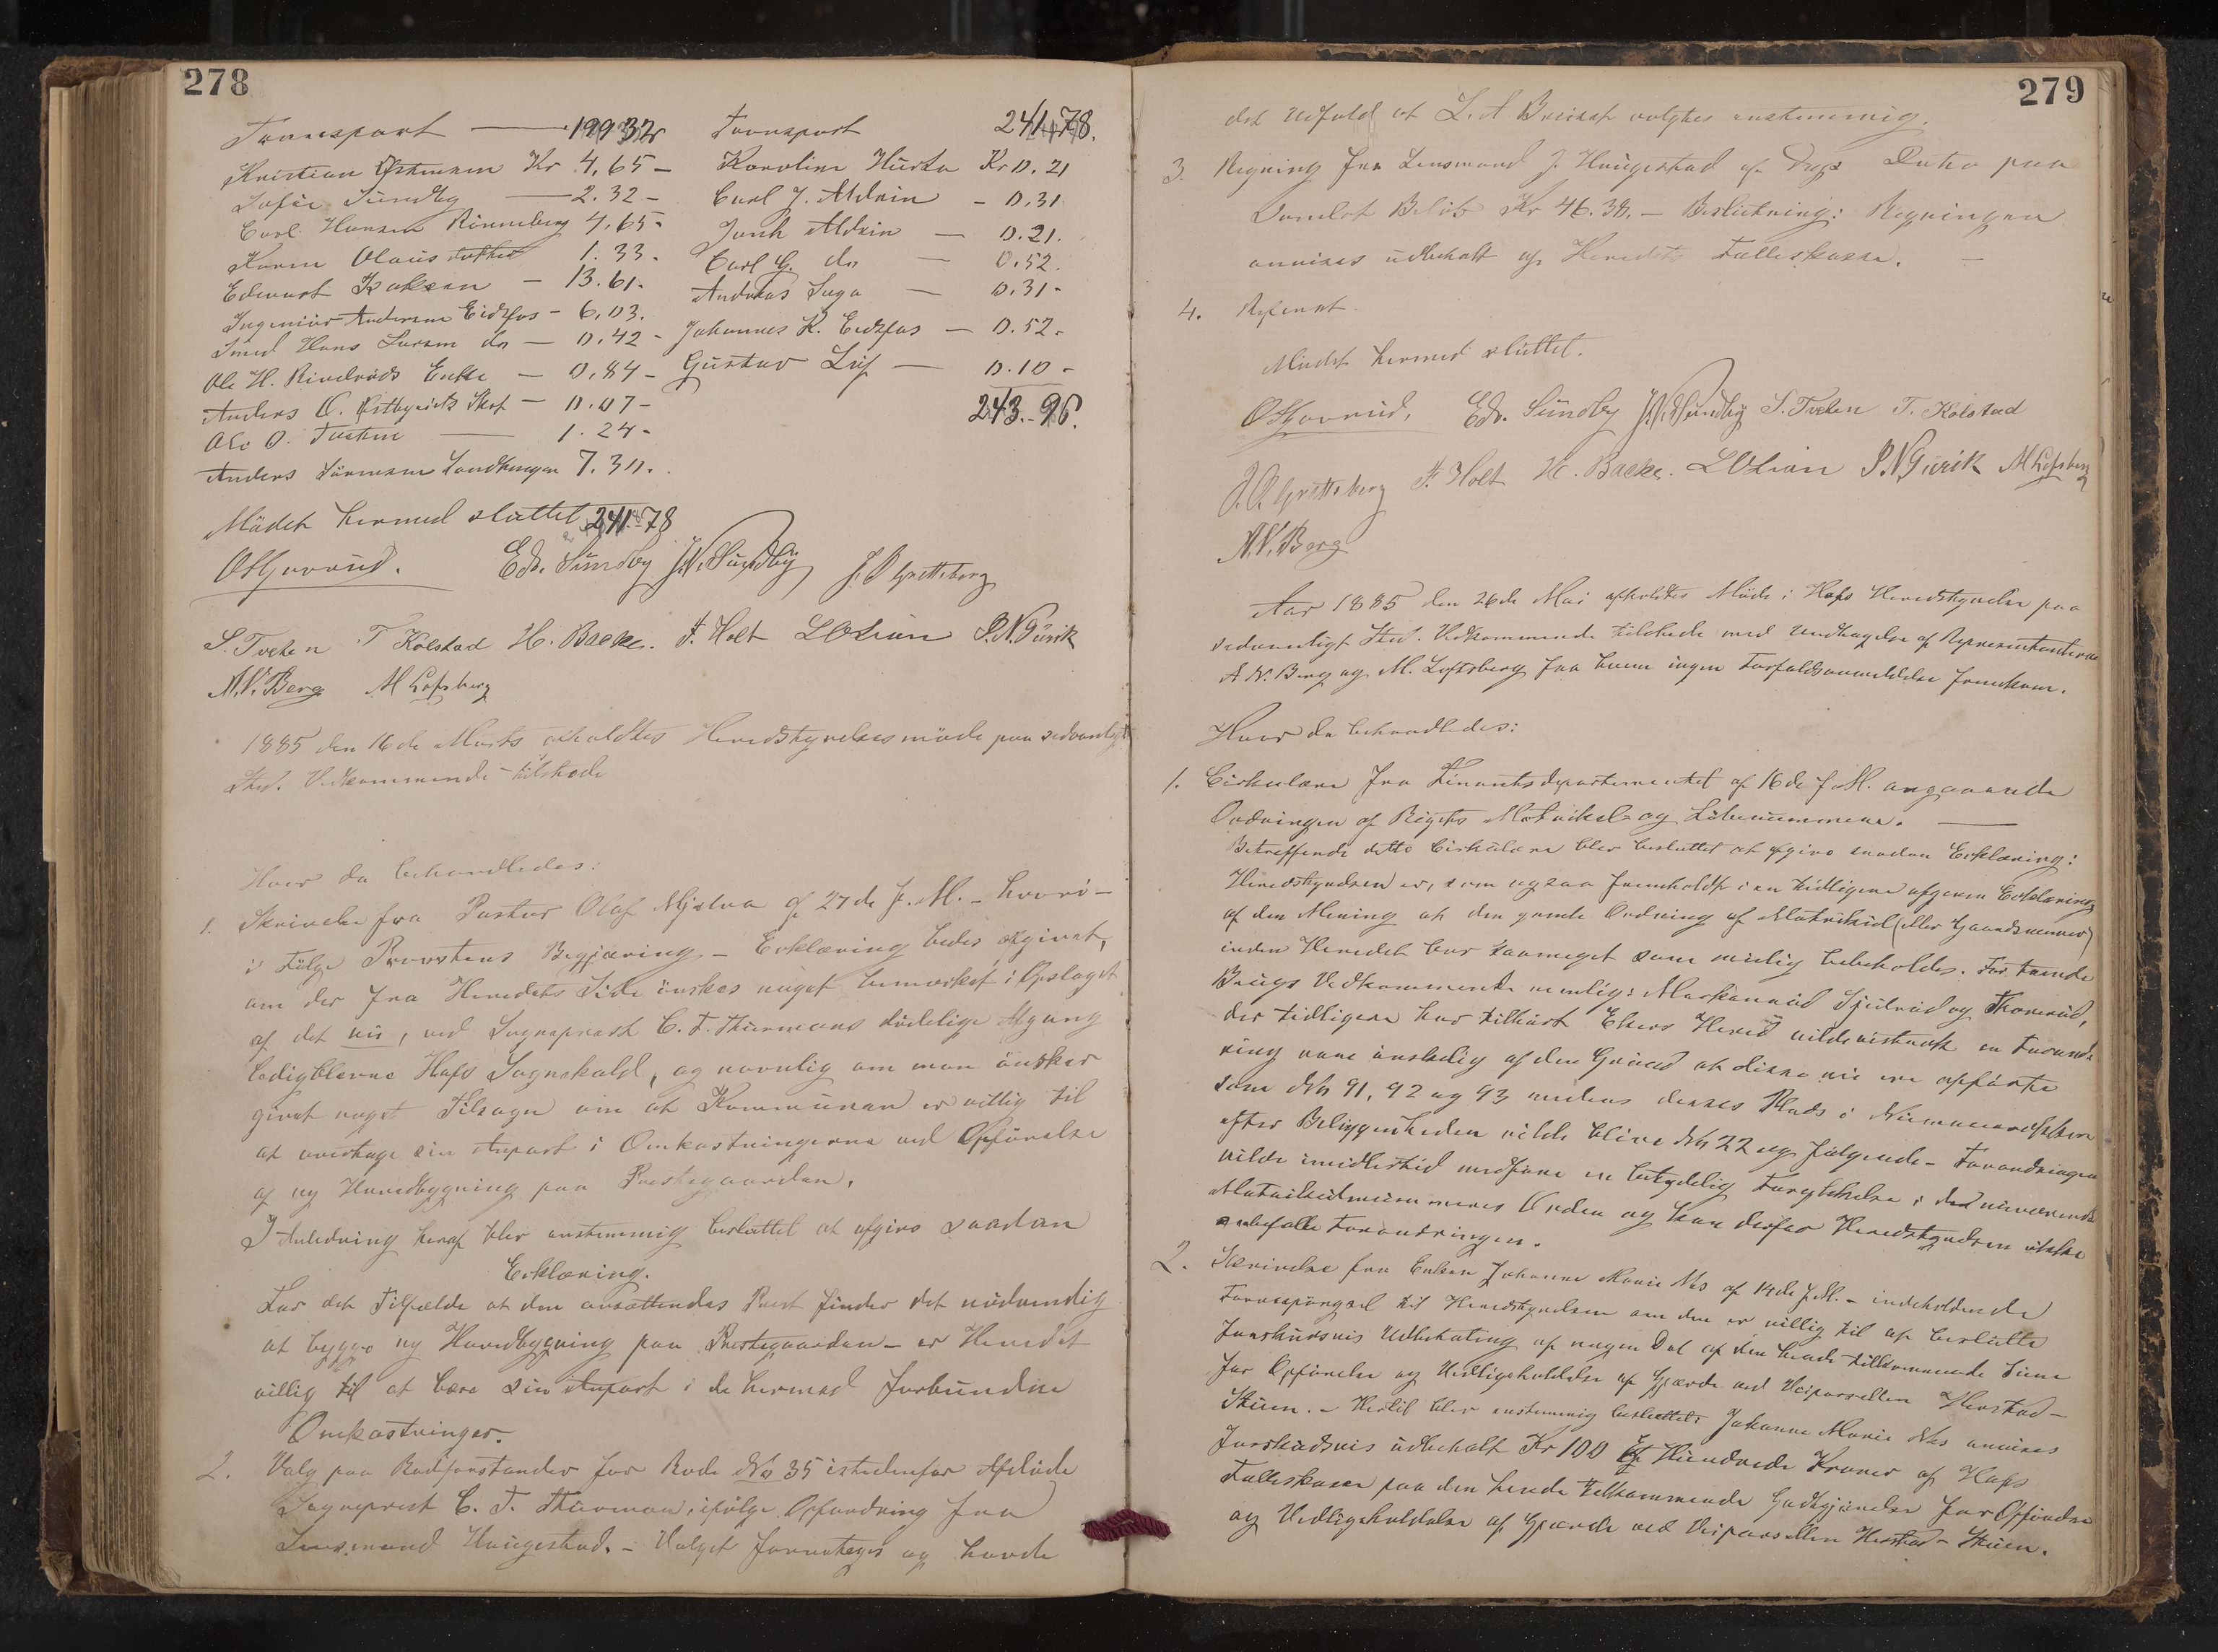 278
Transport — 199 32
Kristian Østmoen Kr 4,65 —
Sofie Sundby — 2.32 —
Carl Hansen Rönneberg 4,65 -
Karen Olausdatter 1.33 -
Edvart Isaksen — 13.61 -
Ingeniör Andersens Eidsfos - 6,03.
Smed Hans Larsen do — 0,42 -
Ole H. Rivelruds Enke — 0,84 -
Anders O. — 0.07 -
Ole O. — 1.24 -
Anders 7.30.
Mödet hermed sluttet 241-78
Transport 241,78.
Karoline Kr 0.21
Carl J. Aldrin - 0,31
Aldrin — 0.21.
Carl G. do — 0,52.
Andreas — 0,31 -
Johannes K. Eidsfos — 0.52 -
Gustav — 0.10 -
243.-96.
OHjorrud. Edv. Sundby J.N. Sundby J. O Gretteberg
S. Tveten T Kolstad H. Backe. F. Holt LOLian P.N. Gurik
A.V. Berg M Lofsberg
1885 den 16de Marts afholdtes Heredstyrelsesmöde paa sedvanligt
Sted. Vedkommende tilstede
Hvor da behandledes:
1. Skrivelse fra Pastor Olaf Mjelva af 27de f. M. - hvori -
i Fölge Provstens Begjæring - Erklæring bedes afgivet,
om der fra Heredets Side önskes noget bemærket i Opslaget
af det nu, ved Sogneprest C. F. Thurmans dödelige Afgang
ledigblevne Hofs Sognekald, og navnlig om man önsker
givet noget Tilsagn om at Kommunen er villig til
at overtage sin Anpart i Omkostningerne ved Opförelse
af ny Hovedbygning paa Prestegaarden.
I Anledning heraf blev enstemmig besluttet at afgive saadan
Erklæring.
For det Tilfælde at den ansættendes Prest finder det nödvendig
at bygge ny Hovedbygning paa Prestegaarden - er Heredet
villig til at bære sin Anpart i de hermed forbundne
Omkostninger.
2. Valg paa Rodforstander for Rode No 35 istedenfor Aflöde
Sogneprest C. F. Thurman, ifölge Opfordring fra
Lensmand Haugestad. - Valget foretoges og havde
279
det Udfald at L. A valgtes enstemmig.
3. Regning fra Lensmand J. Haugestad af Dags Dato paa
Samlet Belöb Kr 46.38. - Beslutning: Regningen
anvises udbetalt af Heredets Fælleskasse. —
4. Referat.
Mödet hermed sluttet.
OHjorrud. Edv. Sundby J.N. Sundby S. Tveten T. Kolstad
J. O. Gretteberg F. Holt H. Backe. LOLian P.N. Gurik M Lofsberg
A.V. Berg
Aar 1885 den 26de Mai afholdtes Möde i Hofs Heredstyrelse paa
sedvanligt Sted. Vedkommende tilstede med Undtagelse af Representanterne
A V. Berg og M. Lofsberg fra hvem ingen Forfaldsanmeldelse fremkom.
Hvor da behandledes:
1. Cirkulære fra Finantsdepartementet af 16de f. M. angaaende
Ordningen af Rigets Matrikel- og Löbenummere. —
Betreffende dette Cirkulære blev besluttet at afgive saadan Erklæring:
Heredstyrelsen er, som ogsaa fremholdt i en tidligere afgiven Erklæring
af den Mening at den gamle Ordning af Matrikul (eller Gaardsnumer)
inden Heredet bör saameget som mulig bibeholdes. For trende
Brugs Vedkommende nemlig: Sjulsrud og Thorerud,
der tidligere har tilhört Ekers Hered vilde vistnok en Forand-
ring være önskelig af den Grund at disse nu ere opförte
som No 91, 92 og 93 medens deres Plads i Nummerrækken
efter Beliggenheden vilde blive No 22 og fölgende - Forandringen
vilde imidlertid medföre en betydelig Forrykkelse i den nuværende
Matrikulnummeres Orden og kan derfor Heredstyrelsen ikke
anbefalle Forandringen.
2. Skrivelse fra Enken Johanne Marie Nes af 14de f. M. - indeholdende
Forespörgsel til Heredstyrelsen om den er villig til at beslutte
forskudsvis Udbetaling af nogen Del af den hende tilkommende Sum
for Opförelse og Vedligeholdelse af Gjærde ved Veiparsellen Herstad -
Skuen. - Hertil blev enstemmig besluttet: Johanne Marie Nes anvises
forskudsvis udbetalt Kr 100 Et Hundrede Kroner af Hofs
Fælleskasse paa den hende tilkommende Godtgjörelse for Opförelse
og Vedligeholdelse af Gjærde ved Veiparsellen Herstad - Skuen.